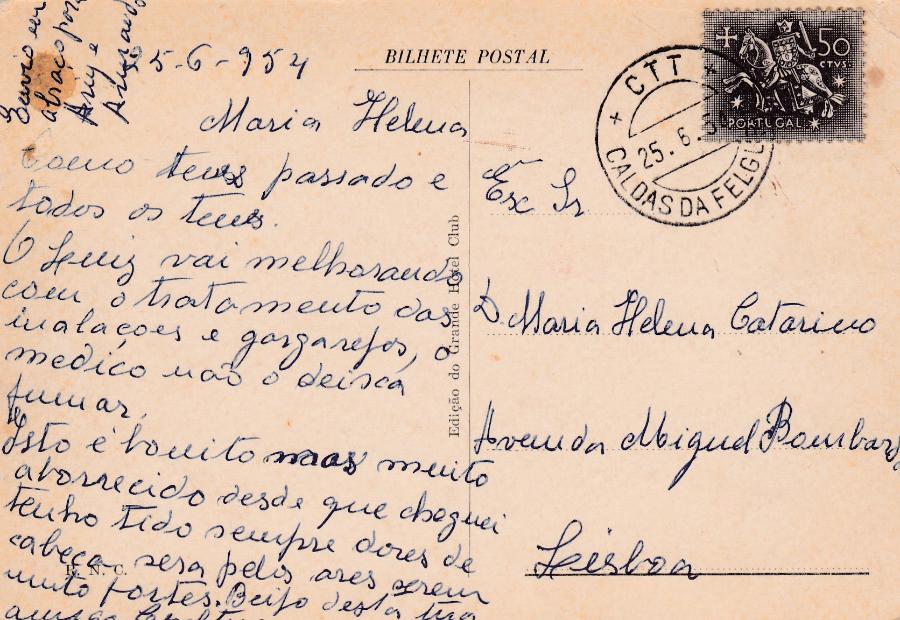 25-6-954
Maria Helena
Como tens passado e
todos os teus.
O Luiz vai melhorando
com o tratamento das
inalaçoes e gargarejos, o
medico não o deisca
fumar.
Isto é bonito mas muito
aborrecido desde que cheguei
tenho tido sempre dores de
cabeça sera pelos ares serem
muito fortes. Beijo desta tua
amiga
Envio um
abraço por
Any e
Armando
Edição do Grande Hotel Club
R. N. C.
BILHETE POSTAL
CTT
25.6.5
CALDAS DA FELGU
50
CTVS.
PORTUGAL
Exᵃ Sr
D. Maria Helena Catarino
Avenida Miguel Bombard
Lisboa